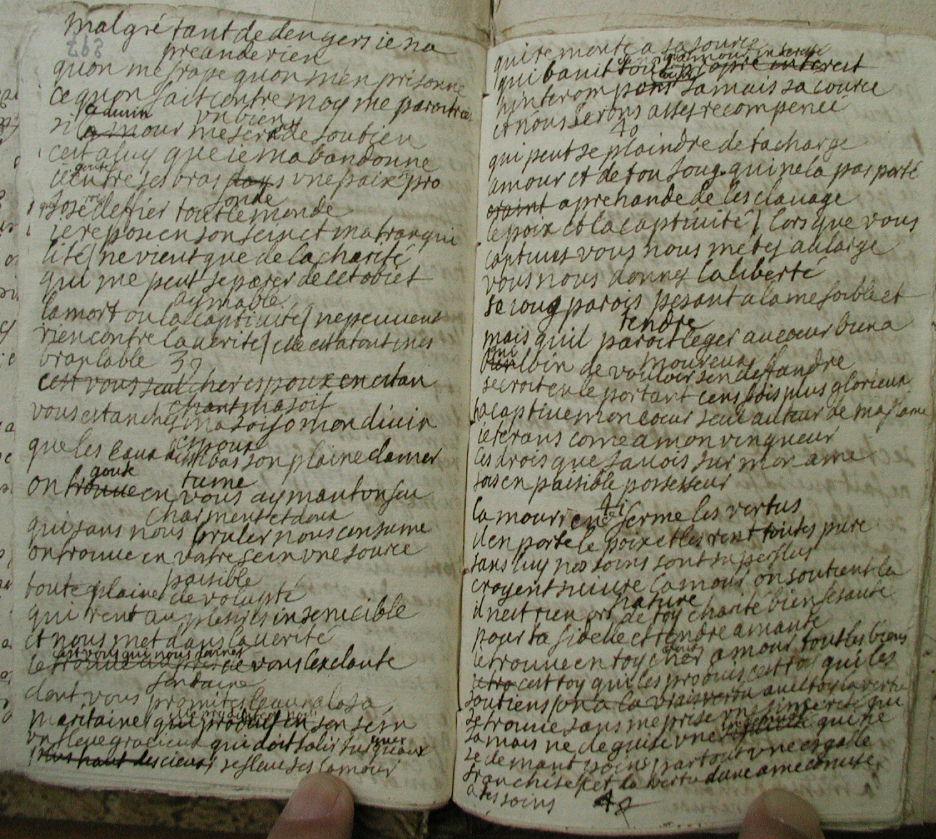 malgré tant de dengers ie na
preande rien
quon me frape quon men prisonne
ce quon fait contre moy me paroitra
un bien
si la mour me sert de soutien
cest a luy que ie mabandonne
entre ses bras dans une paix pro
fonde
iose defier tout le monde
ie repose en son sein et ma tranqui
lité ne vient que de la charité
qui me peut separer de cet obiet
aymable
la mort ou la captivité ne peuvent
rien contre la verité elle est a tout ines
branlable 39
cest vous seul cher espoux en etan
chant ma soif
vous etanchés ma soif o mon divin
espoux
que les eaux dissi bas son plaine damer
tume
on goute en vous aymant un feu
charment et doux
qui sans nous bruler nous consume
on trouve en vatre sein une source
paisible
toute plaine de volupté
qui rent au plaisirs insencible
et nous met dans la verité
cest vous qui nous donnés
de vous lexelante
fontaine
dont vous promites leau a la sa
maritaine qui produit en son sein
un fleuve gracieux qui doit
plus haut des cieux se fleuve ses lamour
qui remonte a sa source
qui banit tout propre interest
ninterompons jamais saource
et nous serons asses recompencé
40
qui peut se plaindre de ta charge
amour et de ton joug qui ne la pas porté
craint aprehande de lesclavage
le poix et la captivité lors que vous
captivés vous nous metes au large
vous nous donnés la liberté
se joug parois pesant a lame foible et
tendre
mais quil paroit leger au coeur bun a
moureux
loin de vouloir sen desfandre
se croit en le portant cens fois plus glorieux
la captive mon coeur seul auteur de ma flame
ie te rans come a mon vinqueur
les drois que javois sur mon ame
sois en paisible possesseur
41
lamour renferme les vertus
il en porte le poix et les rent toutes pure
sans luy nos soins sont superflus
croyent suivre lamour on soutient la
nature
il nest rien de toy charité bien fesante
pour ta fidelle et tendre amante
ie trouve en toy cher amour tout les biens
cest toy qui les produis cest toy qui les
soutiens on a la
se trouve sans meprise une simerise qui
jamais ne de guise une qui ne
se demant poins par tout une egalle
franchise et la vertu dune ame
a tes soins 42